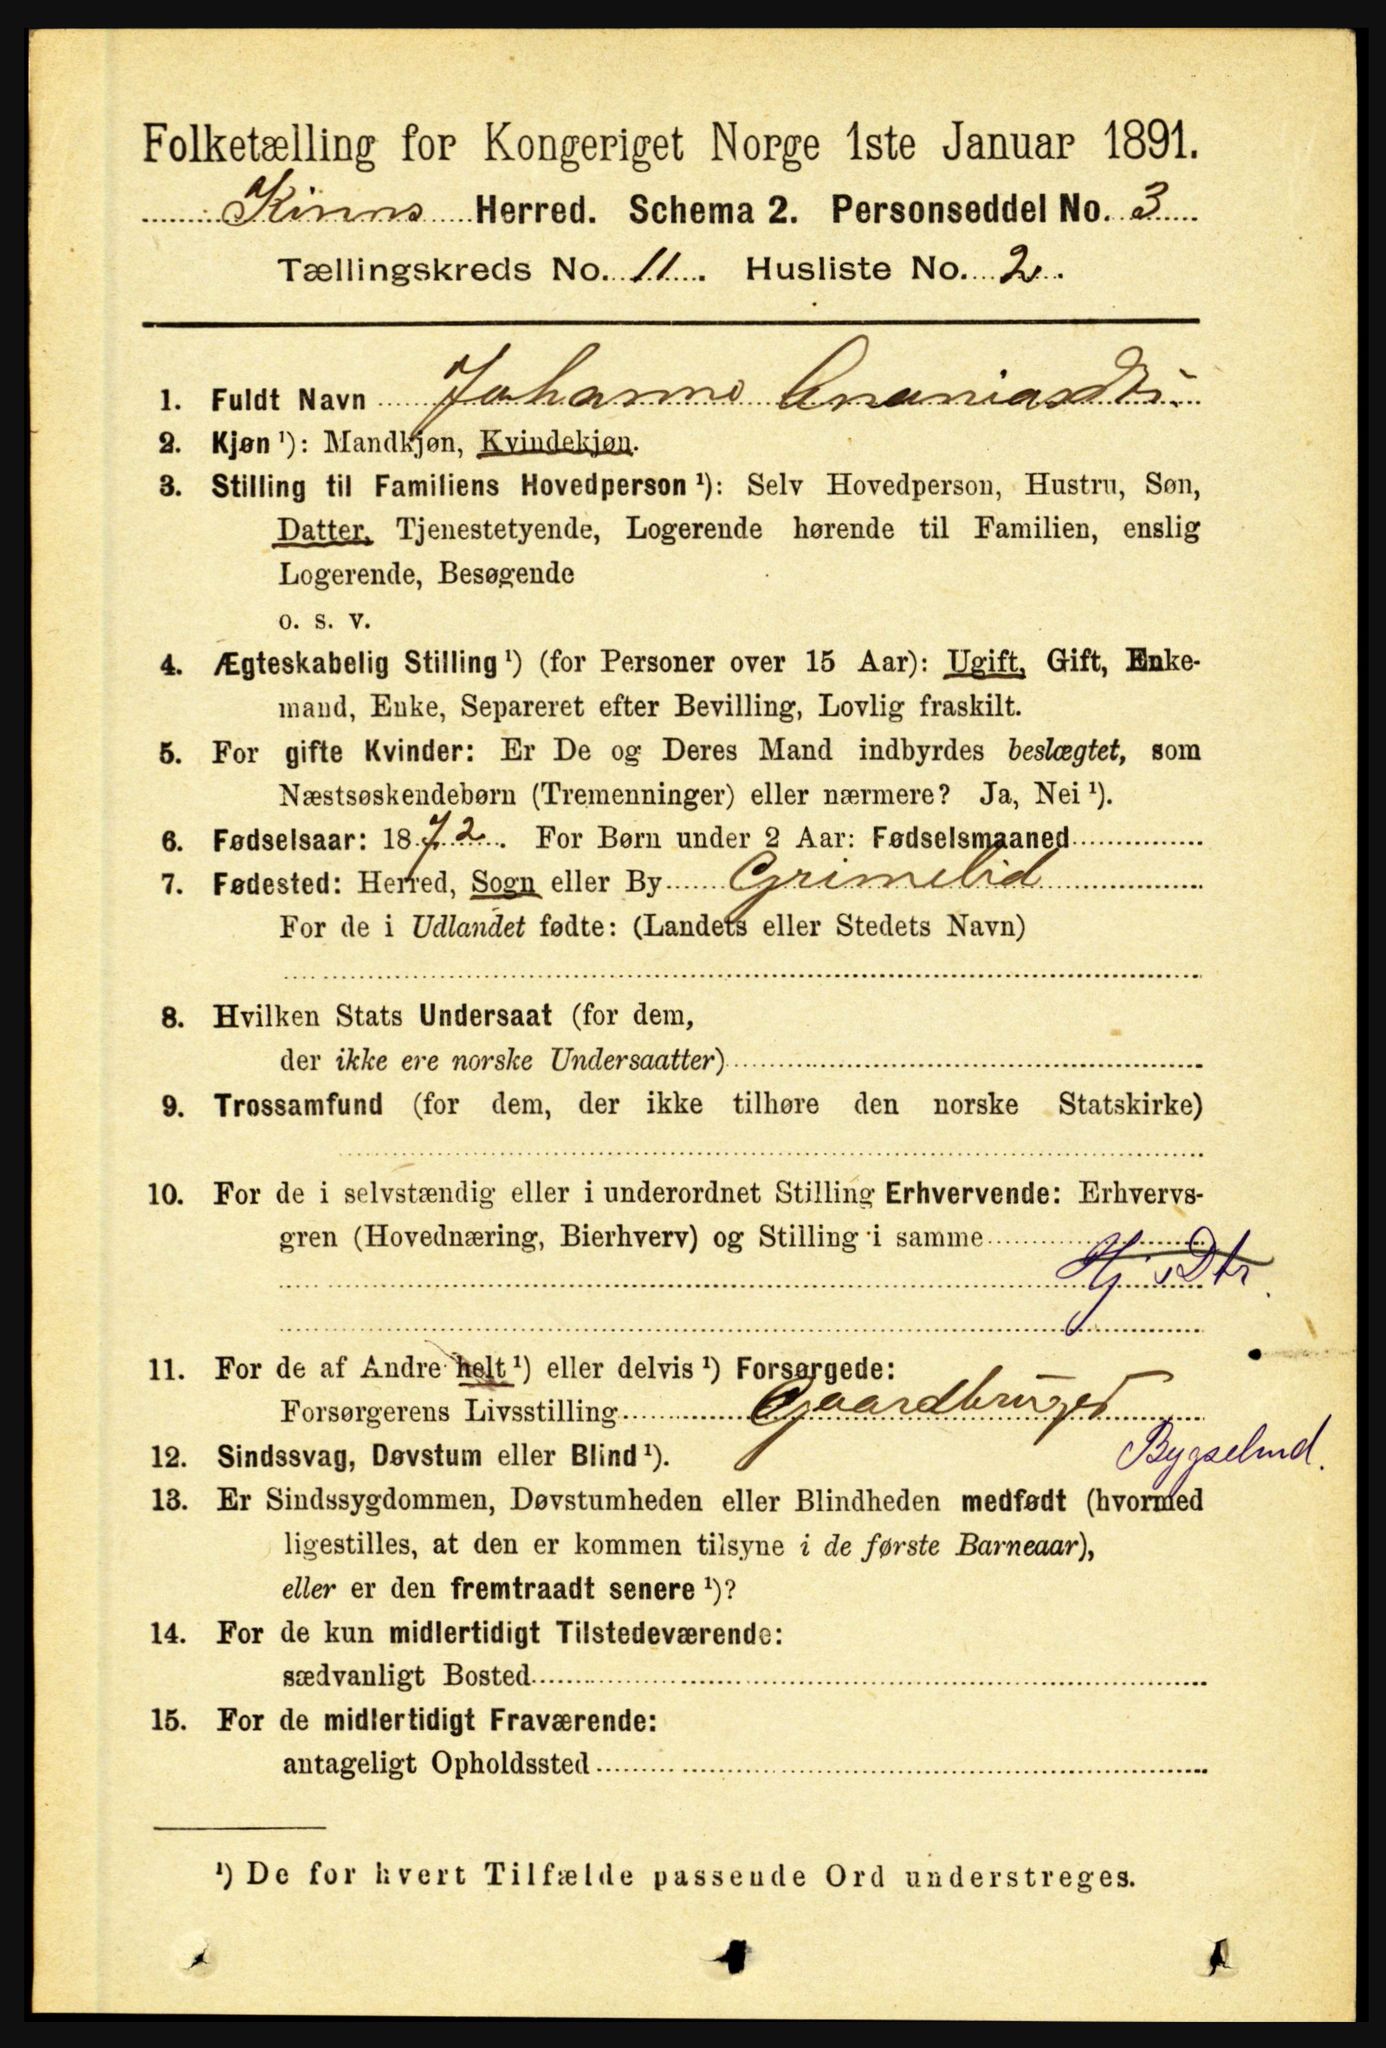 Folketælling for Kongeriget Norge 1ste Januar 1891.
Kinns Herred. Schema 2. Personseddel No. 3
Tællingskreds No. 11. Husliste No. 2.
1. Fuldt Navn Johanne Ananiasdtr.
2. Kjøn¹): Mandkjøn, Kvindekjøn.
3. Stilling til Familiens Hovedperson¹): Selv Hovedperson, Hustru, Søn,
Datter, Tjenestetyende, Logerende hørende til Familien, enslig
Logerende, Besøgende
o. s. v.
4. Ægteskabelig Stilling¹) (for Personer over 15 Aar): Ugift, Gift, Enke-
mand, Enke, Separeret efter Bevilling, Lovlig fraskilt.
5. For gifte Kvinder: Er De og Deres Mand indbyrdes beslægtet, som
Næstsøskendebørn (Tremenninger) eller nærmere? Ja, Nei¹).
6. Fødselsaar: 1872. For Børn under 2 Aar: Fødselsmaaned
7. Fødested: Herred, Sogn eller By Grimelid
For de i Udlandet fødte: (Landets eller Stedets Navn)
8. Hvilken Stats Undersaat (for dem,
der ikke ere norske Undersaatter)
9. Trossamfund (for dem, der ikke tilhøre den norske Statskirke)
10. For de i selvstændig eller i underordnet Stilling Erhvervende: Erhvervs-
gren (Hovednæring, Bierhverv) og Stilling i samme
Hj. Dtr.
11. For de af Andre helt¹) eller delvis¹) Forsørgede:
Forsørgerens Livsstilling Gaardbruger
Bygselmd.
12. Sindssvag, Døvstum eller Blind¹).
13. Er Sindssygdommen, Døvstumheden eller Blindheden medfødt (hvormed
ligestilles, at den er kommen tilsyne i de første Barneaar),
eller er den fremtraadt senere¹)?
14. For de kun midlertidigt Tilstedeværende:
sædvanligt Bosted
15. For de midlertidigt Fraværende:
antageligt Opholdssted
¹) De for hvert Tilfælde passende Ord understreges.